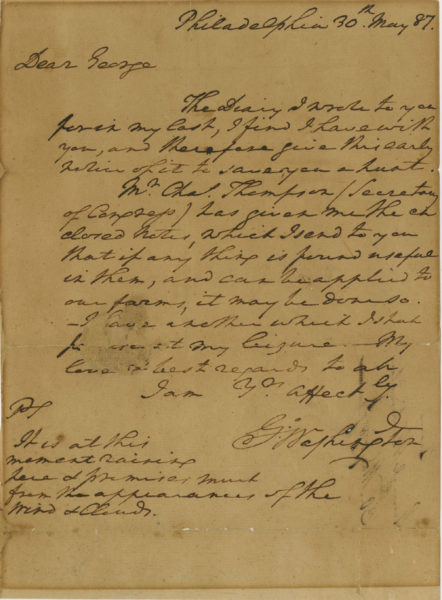 Philadelphia 30th. May 87.
Dear George
The Diary I wrote to you
for in my last, I find I have with
you, and therefore give this early
notice of it to save you a hunt.
Mr. Chas. Thompson (Secretary
of Congress) has given me the en
closed Notes, which I send to you
that if any thing is found useful
in them, and can be applied to
our farms, it may be done so.
— I have another which I shall
at my leizure. — My
love & best regards to all
I am Yrs. affectly.
Go: Washington
PS
It is at this
moment raining
here & promises much
from the appearances of the
Wind & Clouds.